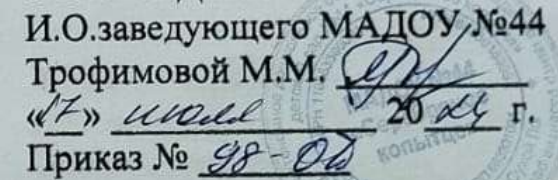 И.О.заведующего МАДОУ №44
Трофимовой М.М.
«17» июля 2024 г.
Приказ № 98-ОД